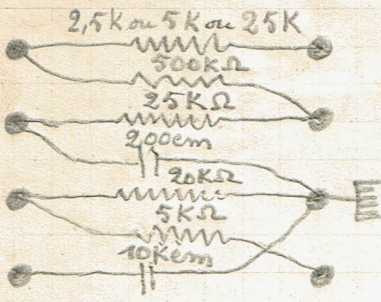 2,5K ou 5K ou 25K
500KΩ
25KΩ
200cm
20KΩ
5KΩ
10Kcm